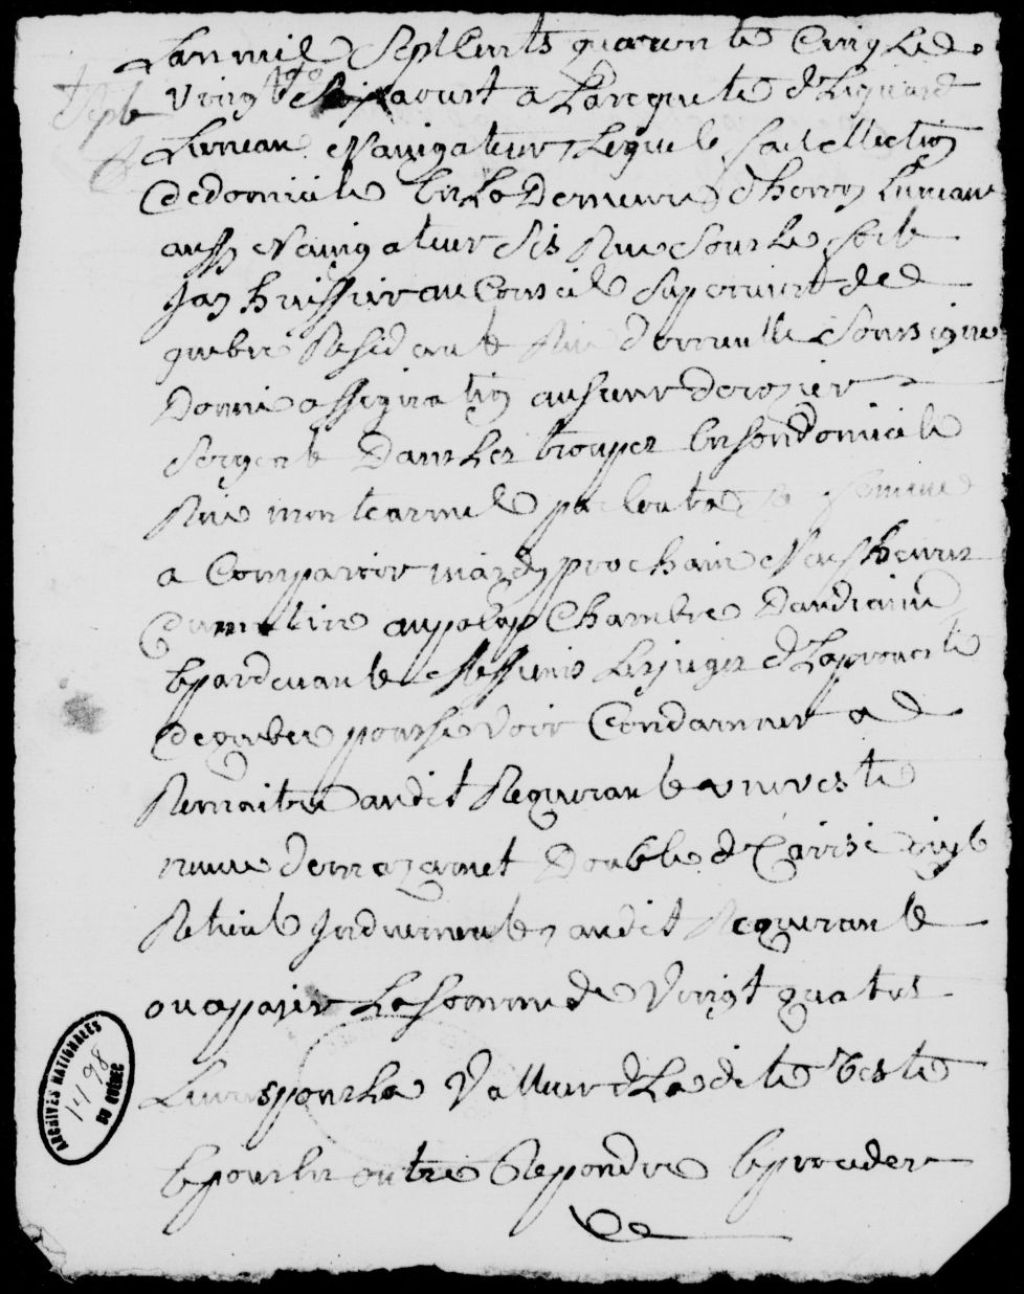 Lan mil Sept Cents quarente Cinq Le
Vingt Six aoust a La requete de Lignard
Luneau Navigateur, Lequel fait Election
de domicile En La Demeure de henry Luneau
aussy Navigateur Sis Rue Sous Le fort
Jay huissier au Conseil Superieur de
quebec Resident Rue Soussigné
Donné assignation au sieur derozier
Sergent Dans Les troupes En son domicile
Rue mont carmel parlant a sa femme
a Comparoir mardy prochain Neuf heures
du matin au palais Chambre Daudiance
Et pardevant Messieurs Les juges de La prevosté
de quebec pour se Voir Condamner a
Remaitre audit Requerant une veste
neuve de mazamet Double de Cairsé
Retient Induement audit Requerant
ou a payer La somme de Vingt quatres
Livres pour La Valleur de La dite Veste
Et pour En outre Repondre Et proceder
ARCHIVES NATIONALES
1498
DU QUÉBEC